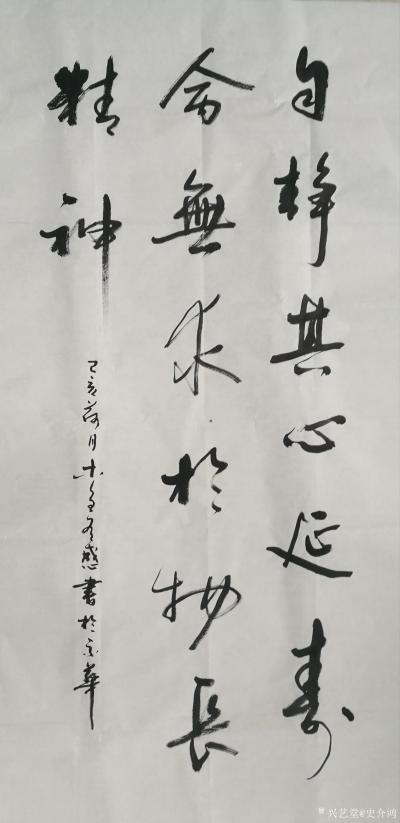 自静其心延寿
命無求於物長
精神
己亥荷月十自有感書於京華
兴艺堂@史介鸿